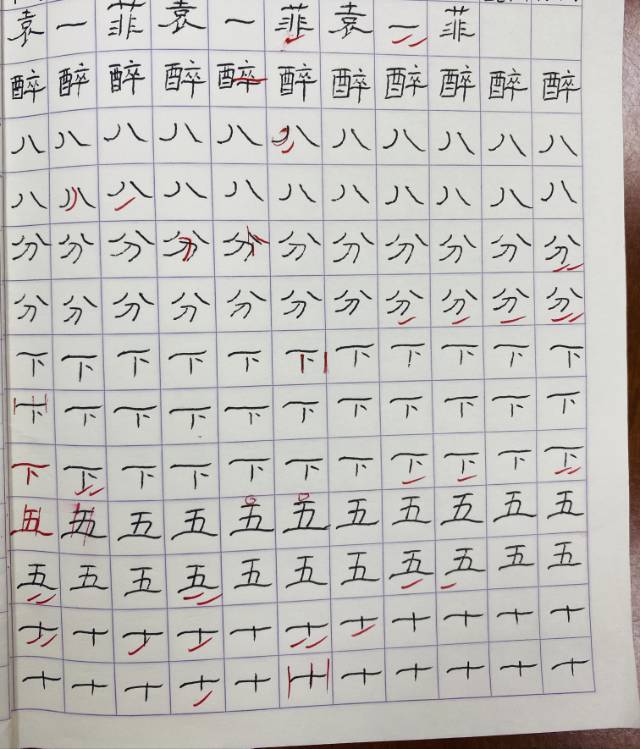 袁一菲袁一菲袁一菲
醉醉醉醉醉醉醉醉醉醉醉
八八八八八八八八八八八
八八八八八八八八八八八
分分分分分分分分分分分
分分分分分分分分分分分
下下下下下下下下下下下
下下下下下下下下下下下
下下下下下下下下下下下
五五五五五五五五五五五
五五五五五五五五五五五
十十十十十十十十十十十
十十十十十十十十十十十